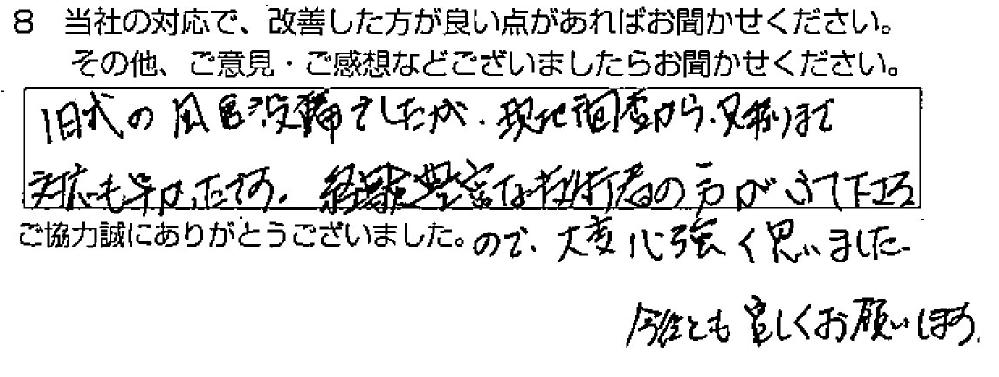 8 当社の対応で、改善した方が良い点があればお聞かせください。
その他、ご意見・ご感想などございましたらお聞かせください。
旧式の風呂設備でしたが、現地調査から、見積りまで
対応も早かったです。経験豊富な技術者の方がいて下さる
ご協力誠にありがとうございました。ので、大変心強く思いました。
今後とも宜しくお願いします。